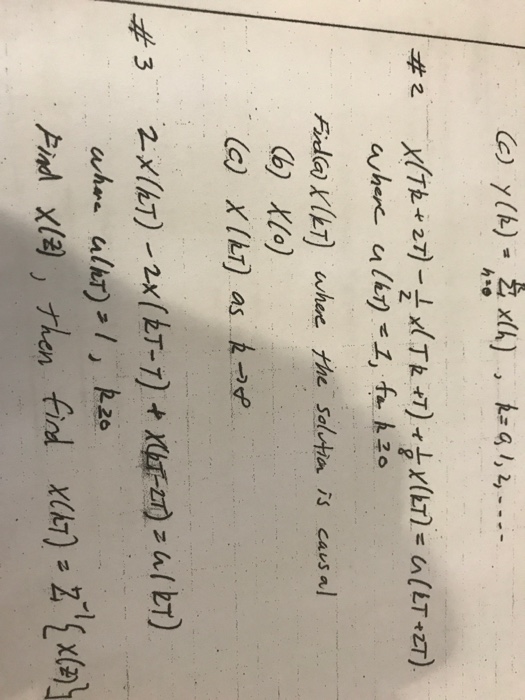 (c) y(k) = Σ_{h=0}^{k} x(h), k=0,1,2,....
#2 X(Tk+2T) - 1/2 X(Tk+T) + 1/8 X(kT) = u(kT+2T).
where u(kT) = 1, for k≥0
Find(a) X(kT) where the solution is causal
(b) X(0)
(c) X(kT) as k→∞
#3 2X(kT) - 2X(kT-T) + X(kT-2T) = u(kT)
where u(kT) = 1, k≥0
Find X(z), then find X(kT) = Z^{-1}{X(z)}